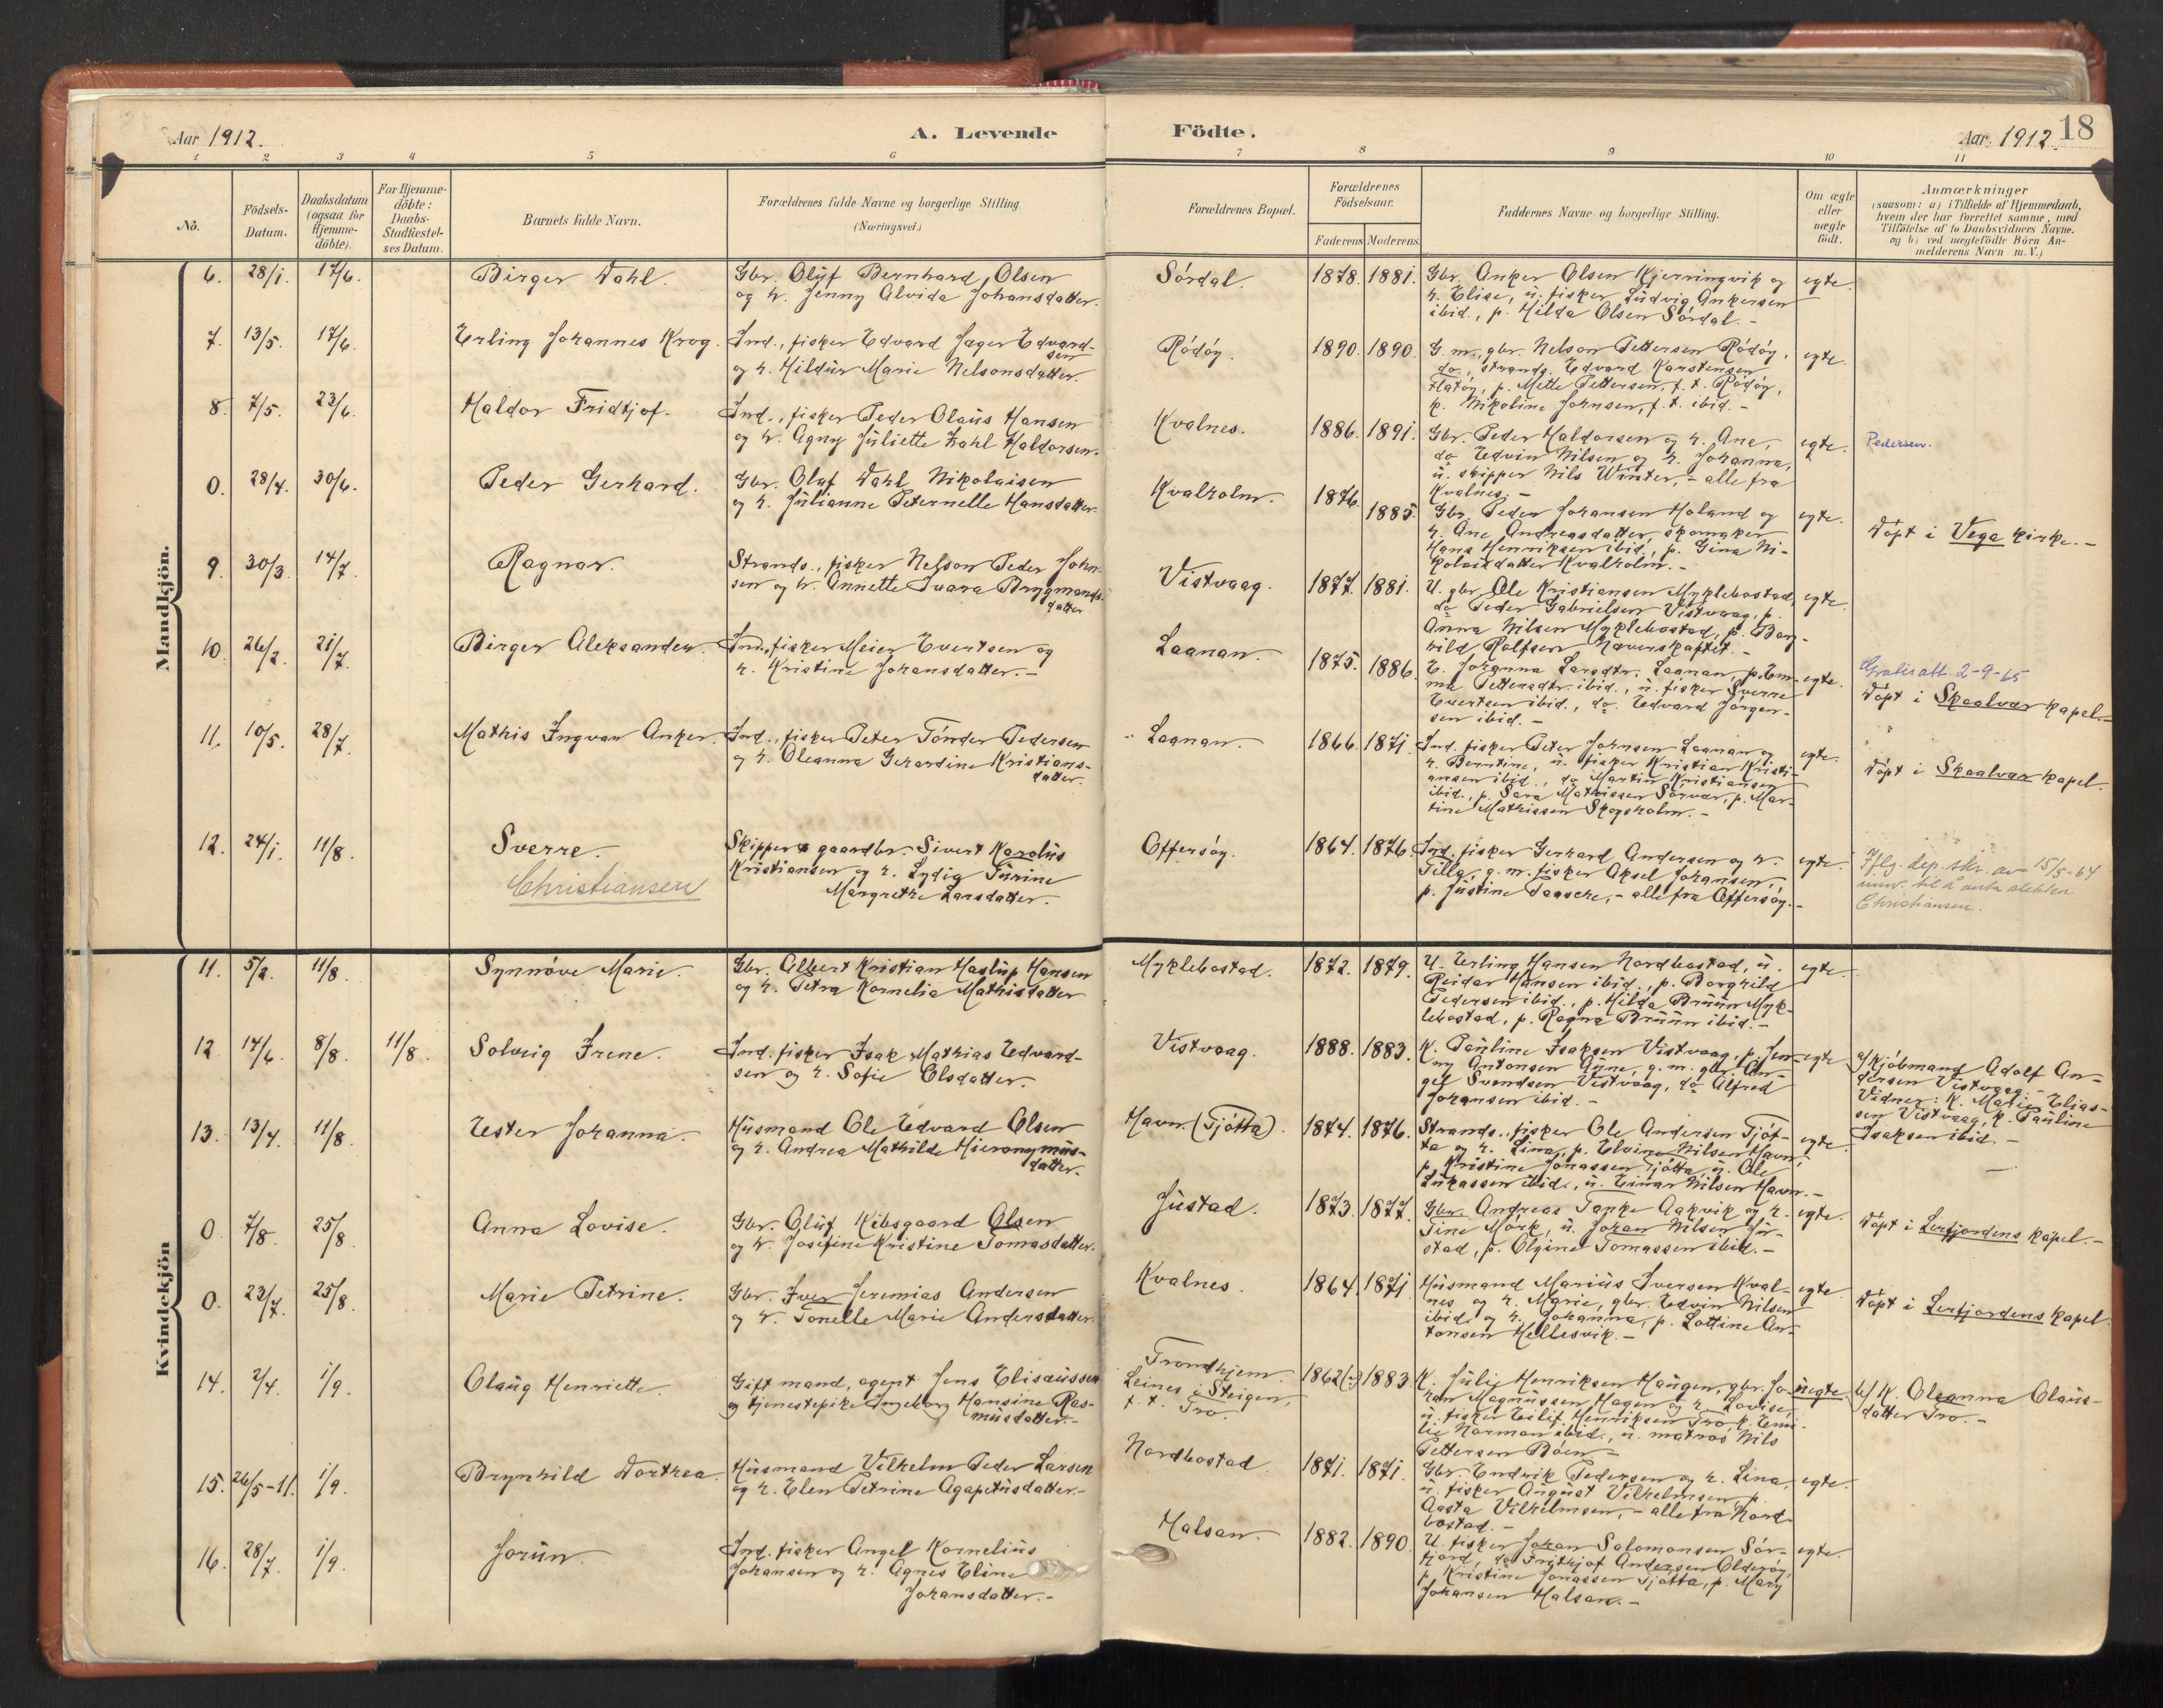 Aar 1912. A. Levende Födte. Aar 1912. 18
1 2 3 4 5 6 7 8 9 10 11
No.
Födsels-
Datum.
Daabsdatum
(ogsaa for
Hjemme-
döbte).
For Hjemme-
döbte:
Daabs-
Stadfæstel-
ses Datum.
Barnets fulde Navn.
Forældrenes fulde Navne og borgerlige Stilling.
(Næringsvei.)
Forældrenes Bopæl.
Forældrenes
Födselsaar.
Faderens Moderens.
Faddernes Navne og borgerlige Stilling.
Om ægte
eller
uægte
födt.
Anmærkninger
(saasom: a) i Tilfælde af Hjemmedaab,
hvem der har forrettet samme, med
Tilföielse af to Daabsvidners Navne.
og b) ved uægtefödte Börn An-
melderens Navn m. V.)
Mandkjön.
6. 28/1. 17/6. Birger Dahl.
Gbr. Oluf Bernhard Olsen
og h. Jenny Alvida Johansdatter.
Sørdal. 1878. 1881.
Gbr. Anker Olsen Kjerringvik og
h. Elise, u. fisker Ludvig Ankersen
ibid., p. Hilda Olsen Sørdal. -
egte.
7. 13/5. 17/6. Erling Johannes Krog.
Ind., fisker Edvard Jæger Edvard-
sen
og h. Hildur Marie Nelsonsdatter.
Rödöy. 1890. 1890.
G. m., gbr. Nelson Pettersen Rödöy,
do., strands. Edvard Karstensen
Flatöy, p. Mette Pettersen, f. t. Rödöy,
p. Nikoline Johnsen, f. t. ibid. -
egte.
8. 7/5. 23/6. Haldor Fridtjof.
Ind., fisker Peder Olaus Hansen
og h. Agny Juliette Zahl Haldorsen.
Kvalnes. 1886. 1891.
Gbr. Peder Haldorsen og h. Ane,
do Edvin Nilsen og h. Johanna,
u. skipper Nils Winter, - alle fra
Kvalnes. -
egte. Pedersen.
0. 28/4. 30/6. Peder Gerhard.
Gbr. Olaf Dahl Nikolaisen
og h. Julianne Peternelle Hansdatter.
Kvalholm. 1876. 1885.
Gbr. Peder Johansen Holand og
h. Ane Andreasdatter, skomaker
Hans Henriksen ibid., p. Gina Ni-
kolaisdatter Kvalholm. -
egte. Døpt i Vega kirke. -
9. 30/3. 14/7. Ragnar.
Strands., fisker Nelson Peder John-
sen og h. Annette Ivara Brygmands-
datter.
Vistvaag. 1877. 1881.
U. gbr. Ole Kristiansen Myklebostad,
do Peder Gabrielsen Vistvaag, p.
Anna Nilsen Myklebostad, p. Borg-
hild Rolfsen Næverskaftet. -
egte.
10. 26/2. 21/7. Birger Aleksander.
Ind., fisker Meier Evertsen og
h. Kristine Johansdatter. -
Laanan. 1875. 1886.
E. Johanna Larsdtr. Laanan, p. Em-
ma Pettersdtr. ibid., u. fisker Sverre
Evertsen ibid., do. Edvard Jörgen-
sen ibid. -
egte.
Gratis att. 2-9-65
Døpt i Skaalvær kapel. -
11. 10/5. 28/7. Mathis Ingvar Anker.
Ind., fisker Peter Tönder Pedersen
og h. Oleanna Gerardine Kristians-
datter.
Laanan. 1866. 1871.
Ind. fisker Peter Johnsen Laanan og
h. Berntine, u. fisker Kristian Kristi-
ansen ibid., do Martin Kristiansen
ibid., p. Sara Mathissen Sørvær, p. Mar-
tine Mathissen Skogsholm. -
egte. Døpt i Skaalvær kapel.
12. 24/1. 11/8. Sverre.
Christiansen
Skipper & gaardbr. Sivert Karolus
Kristiansen og h. Lydia Turine
Margrethe Larsdatter.
Offersöy. 1864. 1876.
Ind. fisker Gerhard Andersen og h.
Tilla, g. m. fisker Aksel Johansen,
p. Justine Taasere, - alle fra Offersöy. -
egte.
Iflg. dep. skr. av 15/5-64
til å anta slektsn.
Christiansen.
Kvindekjön
11. 5/2. 11/8. Synnöve Marie.
Gbr. Albert Kristian Haslup Hansen
og h. Petra Kornelia Mathisdatter
Myklebostad. 1872. 1879.
U. Erling Hansen Nordbostad, u.
Reidar Hansen ibid., p. Borghild
Pedersen ibid., p. Hilda Bruun Myk-
lebostad, p. Ragna Bruun ibid. -
egte.
12. 14/6. 8/8. 11/8. Solveig Irene.
Ind. fisker Isak Mathias Edvard-
sen og h. Sofie Olsdatter.
Vistvaag. 1888. 1883.
K. Pauline Isaksen Vistvaag, p. Jen-
ny Antonsen Aune, g. m. gbr. An-
gel Svendsen Vistvaag, do Alfred
Johansen ibid. -
egte
a) Kjöbmand Adolf An-
dersen Vistvaag. -
Vidner: K. Marie Elias-
sen Vistvaag, K. Pauline
Isaksen ibid. -
13. 13/4. 11/8. Ester Johanna.
Husmand Ole Edvard Olsen
og h. Andrea Mathilde Hieronymus-
datter.
Havn (Tjötta). 1874. 1876.
Strands., fisker Ole Andersen Tjöt-
ta og h. Lina, p. Elvine Nilsen Havn,
p. Kristine Jonassen Tjötta, u. Ole
Lukassen ibid., u. Einar Nilsen Havn. -
egte.
0. 7/8. 25/8. Anna Lovise.
Gbr. Oluf Kibsgaard Olsen
og h. Josefine Kristine Tomasdatter.
Justad. 1873. 1877.
Gbr. Andreas Tanke Aakvik og h.
Tine Mörk, u. Johan Nilsen Ju-
stad, p. Olgine Tomassen ibid. -
egte. Døpt i Leirfjordens kapel. -
0. 23/7. 25/8. Marie Petrine.
Gbr. Iver Jeremias Andersen
og h. Tonelle Marie Andersdatter.
Kvalnes. 1864. 1871.
Husmand Marius Iversen Kval-
nes og h. Marie, gbr. Edvin Nilsen
ibid. og h. Johanna, p. Lottine An-
tonsen Hellesvik. -
egte. Døpt i Leirfjordens kapel.
14. 2/4. 1/9. Olaug Henriette.
Gift mand, agent Jens Elisæussen
og tjenestepike Ingeborg Hansine Ras-
musdatter. -
Trondhjem.
Leines i Steigen,
t. t. Tro.
1862(?) 1883.
K. Julie Henriksen Haugen, gbr. Jo-
han Magnussen Hagen og h. Lovise,
u. fisker Eilif Henriksen Tro, K. Emi-
lie Norman ibid., u. matros Nils
Pettersen Böen -
uegte.
b) K. Oleanna Olaus-
datter Tro. -
15. 26/5-11. 1/9. Brynhild Dorthea.
Husmand Vilhelm Peder Larsen
og h. Elen Petrine Agapetusdatter. -
Nordbostad 1871. 1871.
Gbr. Endrik Pedersen og h. Lina,
u. fisker August Vilhelmsen, p.
Aasta Vilhelmsen, - alle fra Nord-
bostad. -
egte.
16. 28/7. 1/9. Jorun.
Ind. fisker Angel Kornelius
Johansen og h. Agnes Eline
Johansdatter. -
Halsan. 1882. 1890.
U. fisker Johan Salomonsen Sör-
fjord, do Frithjof Andersen Olderöy,
p. Kristine Jonassen Tjötta, p. Mary
Johansen Halsan. -
egte.